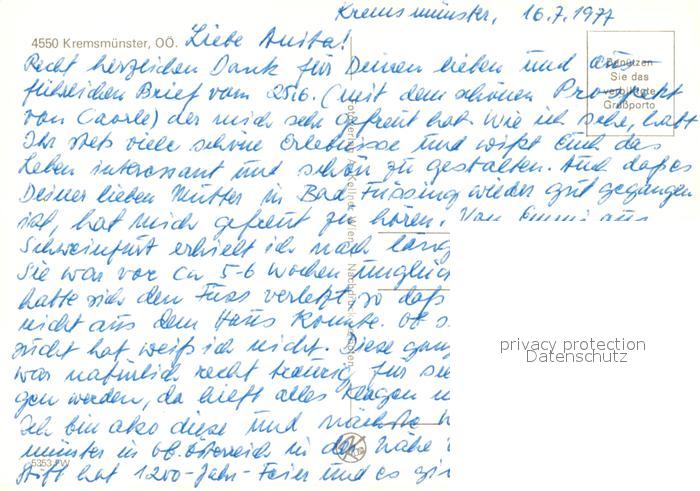 Kremsmünster, 16.7.1977
4550 Kremsmünster, OÖ.
Liebe Anita!
Benützen
Sie das
verbilligte
Grußporto
Recht herzlichen Dank für Deinen lieben und aus-
führlichen Brief vom 25.6. (mit dem schönen Prospekt
von Caorle) der mich sehr gefreut hat. Wie ich sehe, habt
Ihr stets viele schöne Erlebnisse und wißt Euch das
Leben interessant und schön zu gestalten. Auch daß es
Deiner lieben Mutter in Bad Füssing wieder gut gegangen
ist, hat mich gefreut zu hören. Von Emmi aus
Schweinfurt erhielt ich nach lang
Sie war vor ca 5-6 Wochen unglüc
hatte sich den Fuss verletzt, so daß
nicht aus dem Haus konnte. Ob s
zücht hat weiß ich nicht. Diese ganz
war natürlich recht traurig für sie
gen werden, da hieft alles klagen
Ich bin also diese und nächste
münster in Ob.Österreich in der Nähe
Stift hat 1200-Jahr-Feier und es gi
5353 PW
privacy protection
Datenschutz